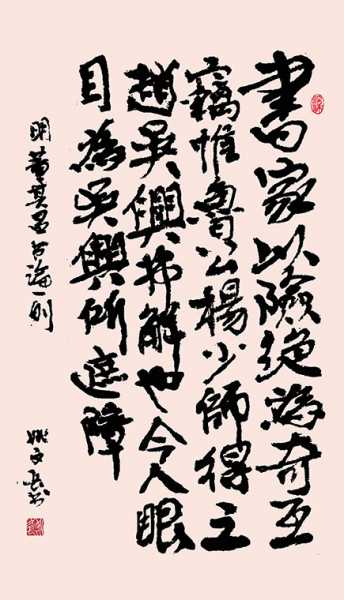 書家以險絕為奇此
竅惟魯公楊少師得之
趙吳興弗解也今人眼
目為吳興所遮障
明董其昌書論一則
姚文